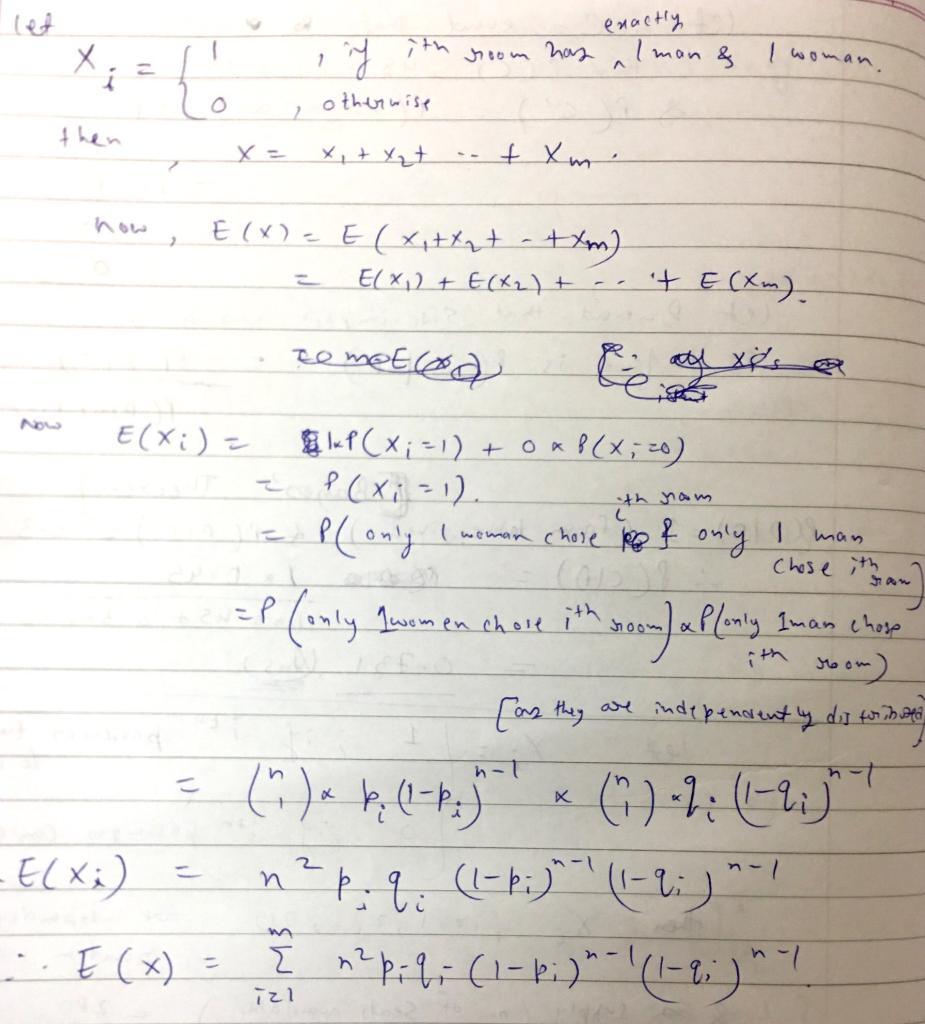 let
X_i = { 1 , if ith room has exactly 1 man & 1 woman.
0 , otherwise
then , X = X_1 + X_2 + -- + X_m .
now , E(X) = E(X_1 + X_2 + - + X_m)
= E(X_1) + E(X_2) + -- + E(X_m).
now E(X_i) = 1×P(X_i = 1) + 0 × P(X_i = 0)
= P(X_i = 1).
= P( only 1 woman chose ith room & only 1 man chose ith room)
= P(only 1 women chose ith room) × P(only 1 man chose
ith room)
[as they are independently distributed]
= (n 1) × p_i (1-p_i)^{n-1} × (n 1) × q_i (1-q_i)^{n-1}
E(X_i) = n^2 p_i q_i (1-p_i)^{n-1} (1-q_i)^{n-1}
∴ E(X) = Σ_{i=1}^{m} n^2 p_i q_i (1-p_i)^{n-1} (1-q_i)^{n-1}.